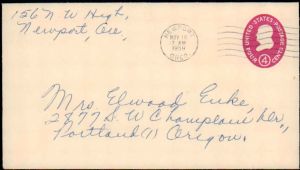 156 N W High,
Newport, Ore
NEWPORT
NOV 18
7 AM
1958
OREG.
UNITED STATES POSTAGE
4
Mrs Elwood Enke,
2877 S W Champlain Dr,
Portland (1) Oregon.